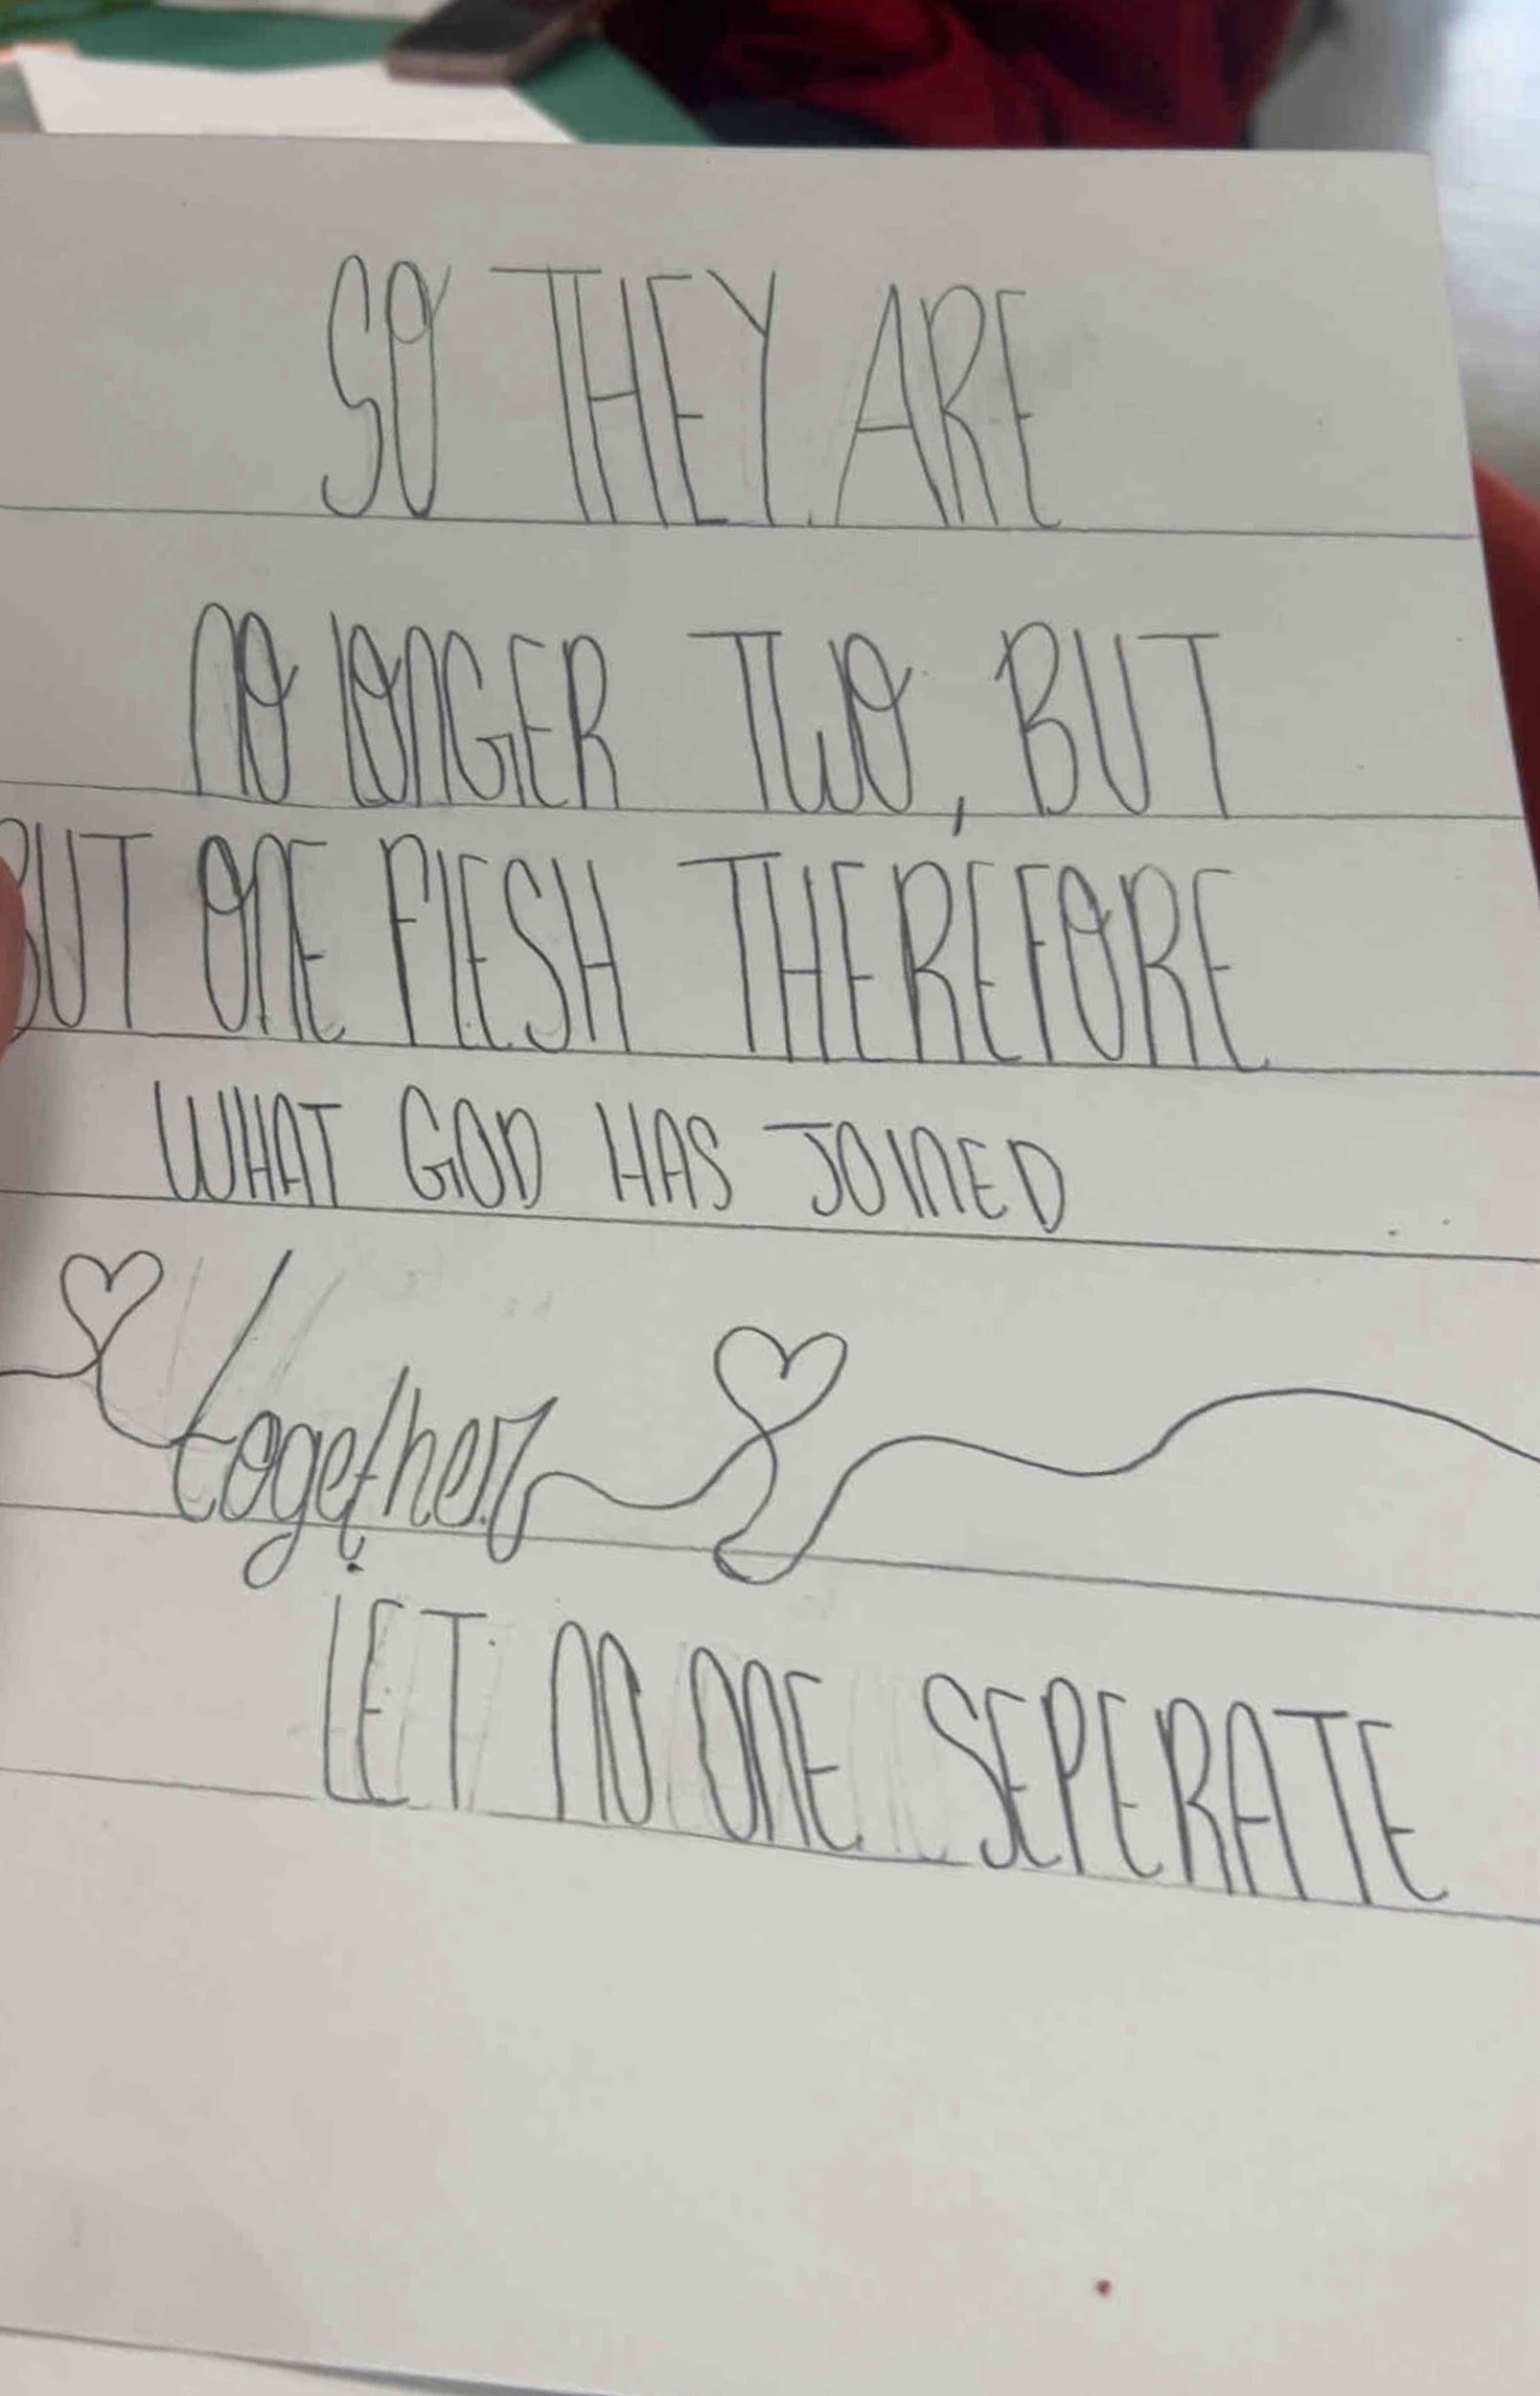 SO THEY ARE
NO LONGER TWO, BUT
BUT ONE FLESH THEREFORE
WHAT GOD HAS JOINED
together
LET NO ONE SEPERATE